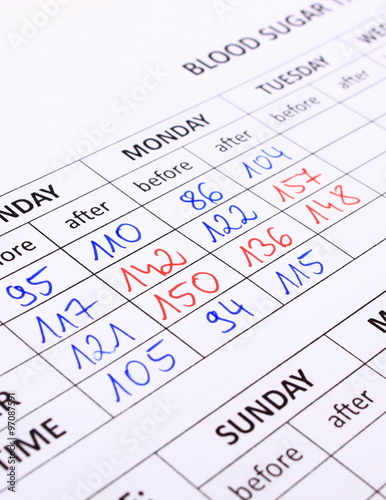 BLOOD SUGAR T
NDAY MONDAY TUESDAY WE
ore after before after before after
95 110 86 104
117 142 122 157
121 150 136 148
105 94 115
IME SUNDAY M
before after
Adobe Stock | #97087991